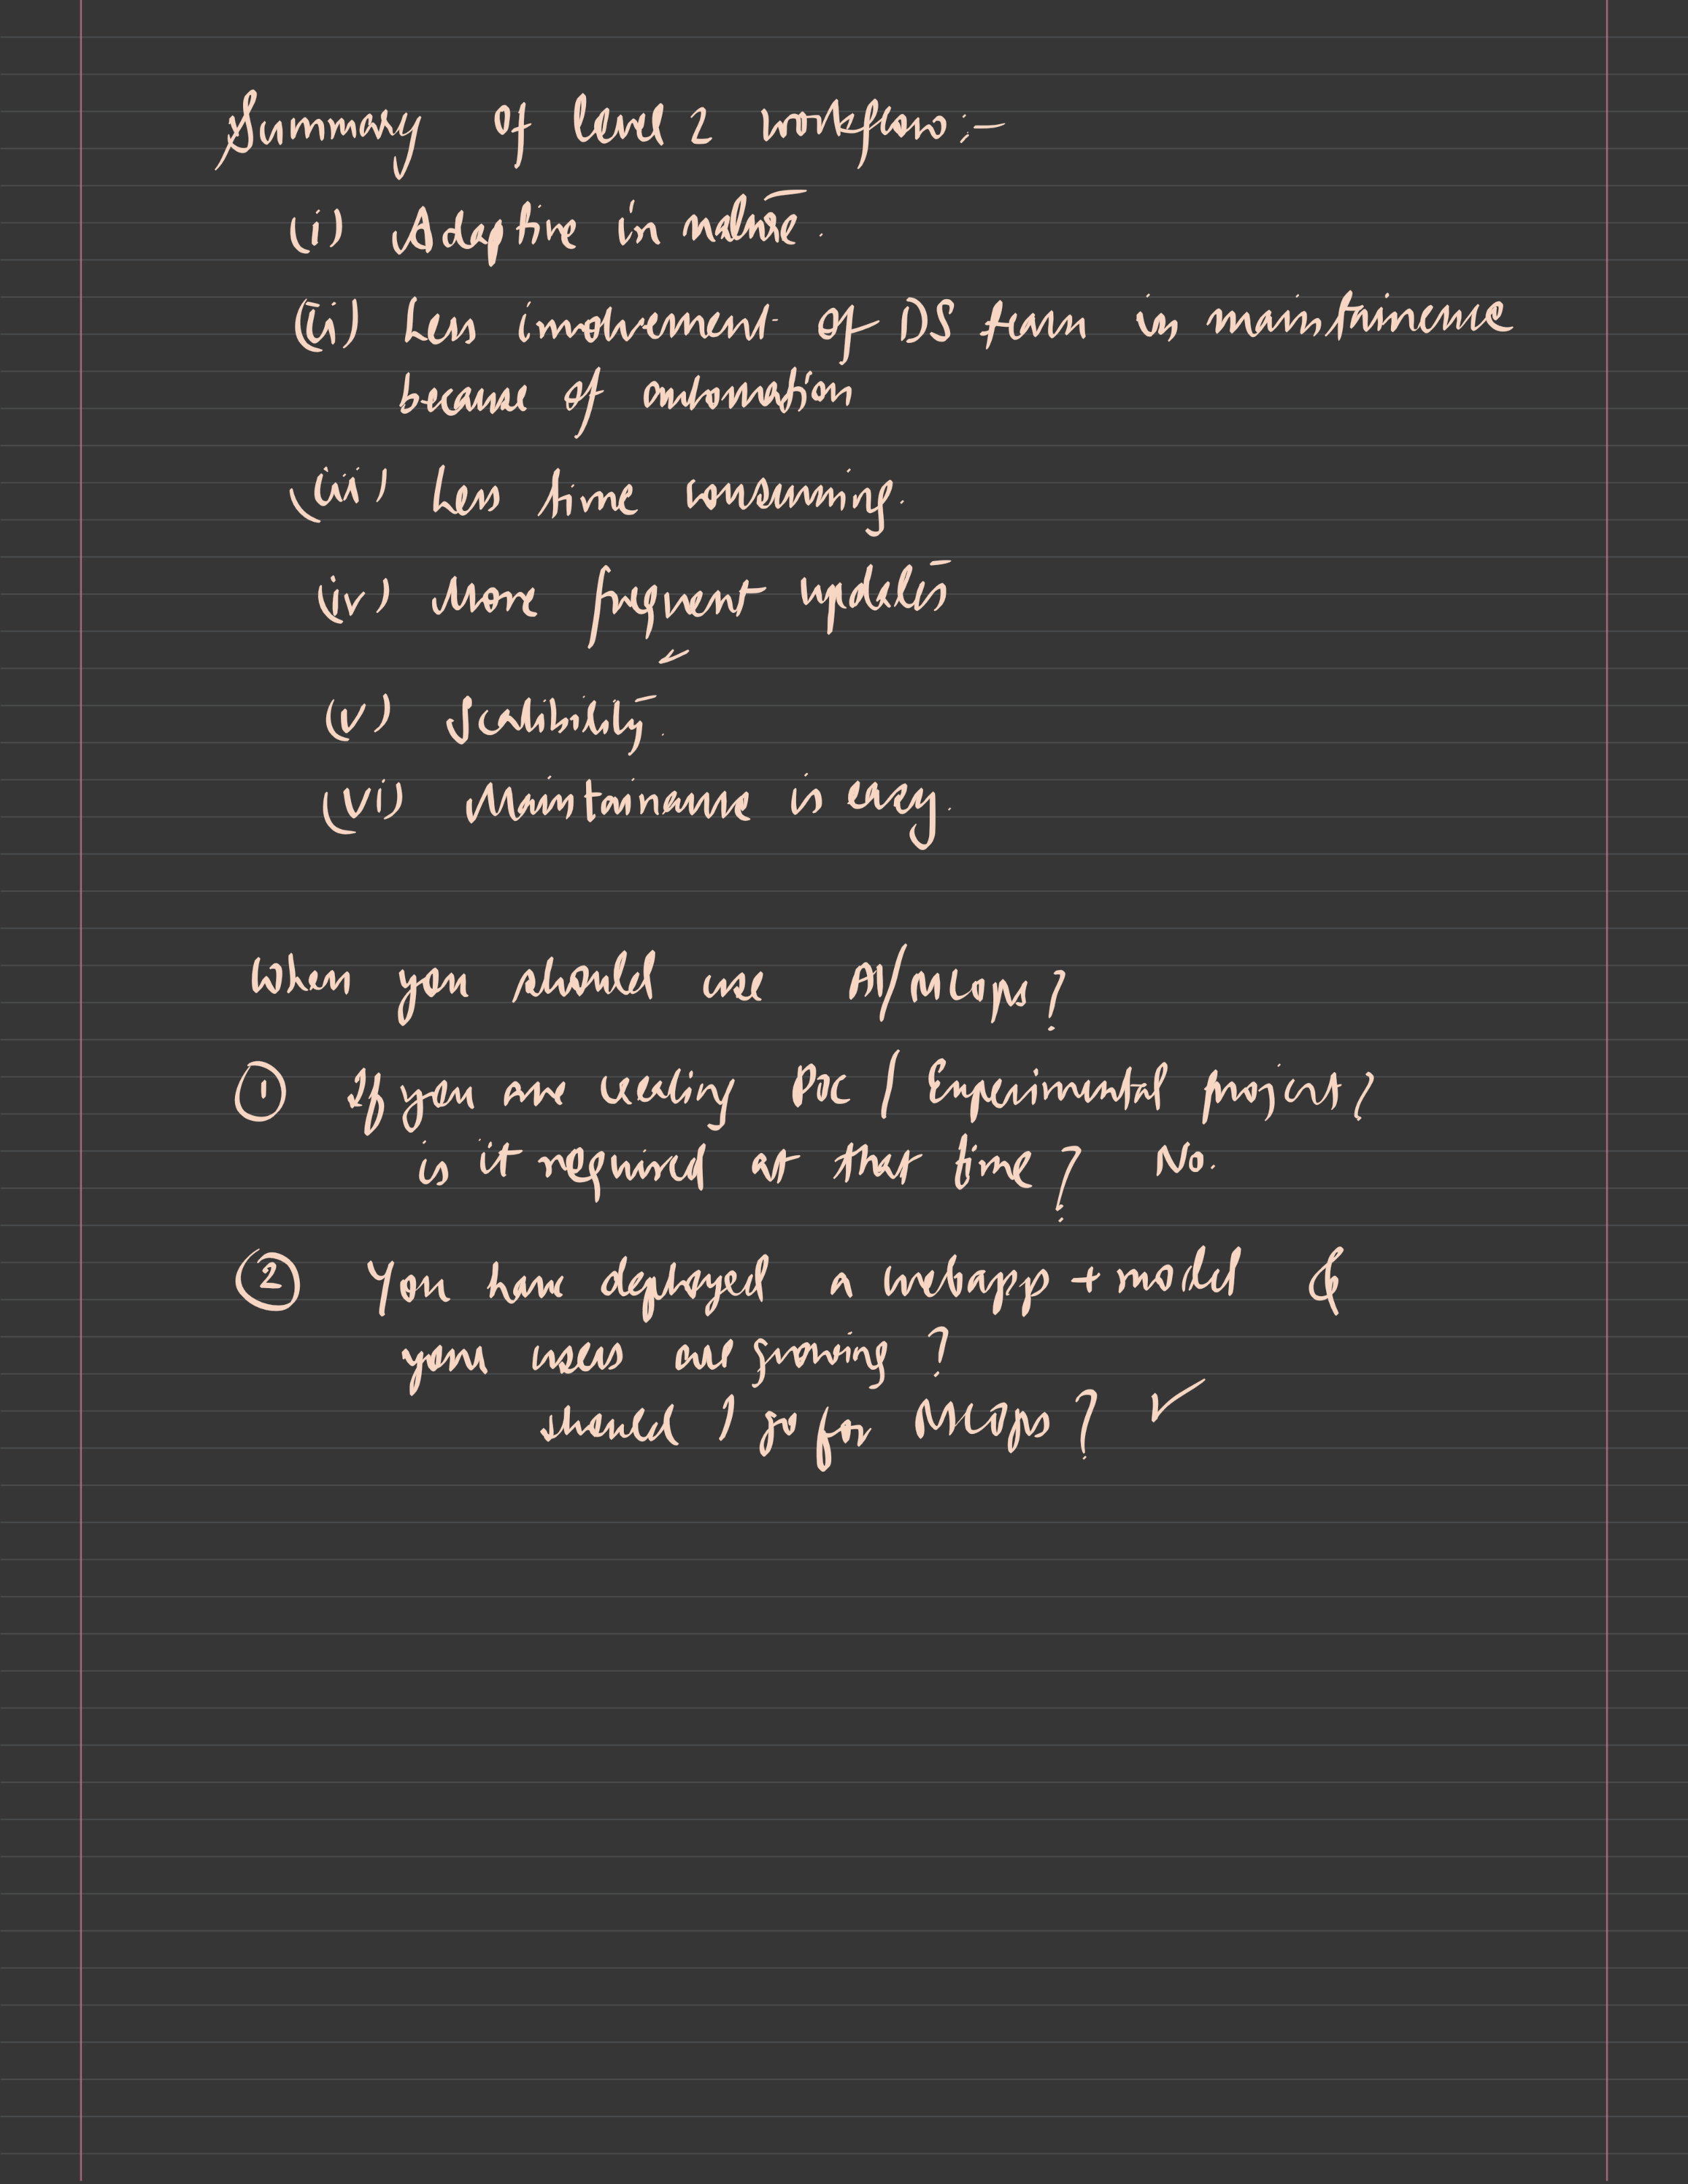 Summary of level 2 workflow :-
(i) Adaptive in nature.
(ii) Less involvement of DS team in maintainence
because of automation
(iii) Less time consuming.
(iv) More frequent updates
(v) Scalibility.
(vi) Maintainence is easy.
When you should use MLOps?
① If you are creating POC / Experimental project,
is it required at that time? No.
② You have deployed a webapp + model &
your users are growing?
should I go for MLOps? ✓